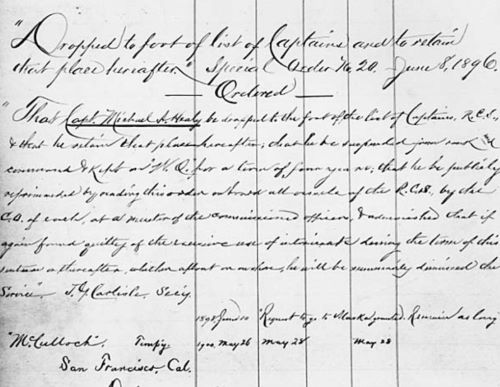 "Dropped to foot of list of Captains and to retain
that place hereafter." Special Order No. 20. June 8, 1896.
Ordered
"That Capt. Michael A. Healy be dropped to the foot of the list of Captains, R.C.S.,
& that he retain that place hereafter; that he be suspended from rank &
command & kept on W.O. for a term of four years; that he be publicly
reprimanded by reading this order on board all vessels of the R.C.S. by the
C.O. of each, at a muster of the commissioned officers, & admonished that if
again found guilty of the excessive use of intoxicants during the term of this
sentence or thereafter, whether afloat or on shore, he will be summarily dismissed the
Service". J. G. Carlisle, Sec'y.
June 10 "Request to go to Alaska granted. Remain as long
"McCulloch", Tempy. 1900, May 26 May 28 May 28
San Francisco, Cal.